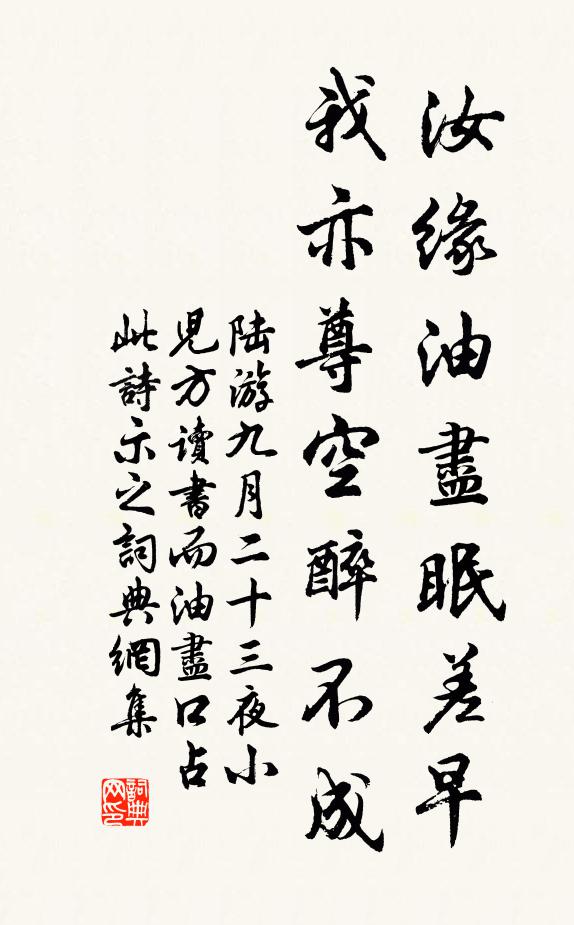 汝緣油盡眠差早
我亦尊空醉不成
陆游九月二十三夜小
児方讀書而油盡口占
此詩示之詞典網集
詞典网印